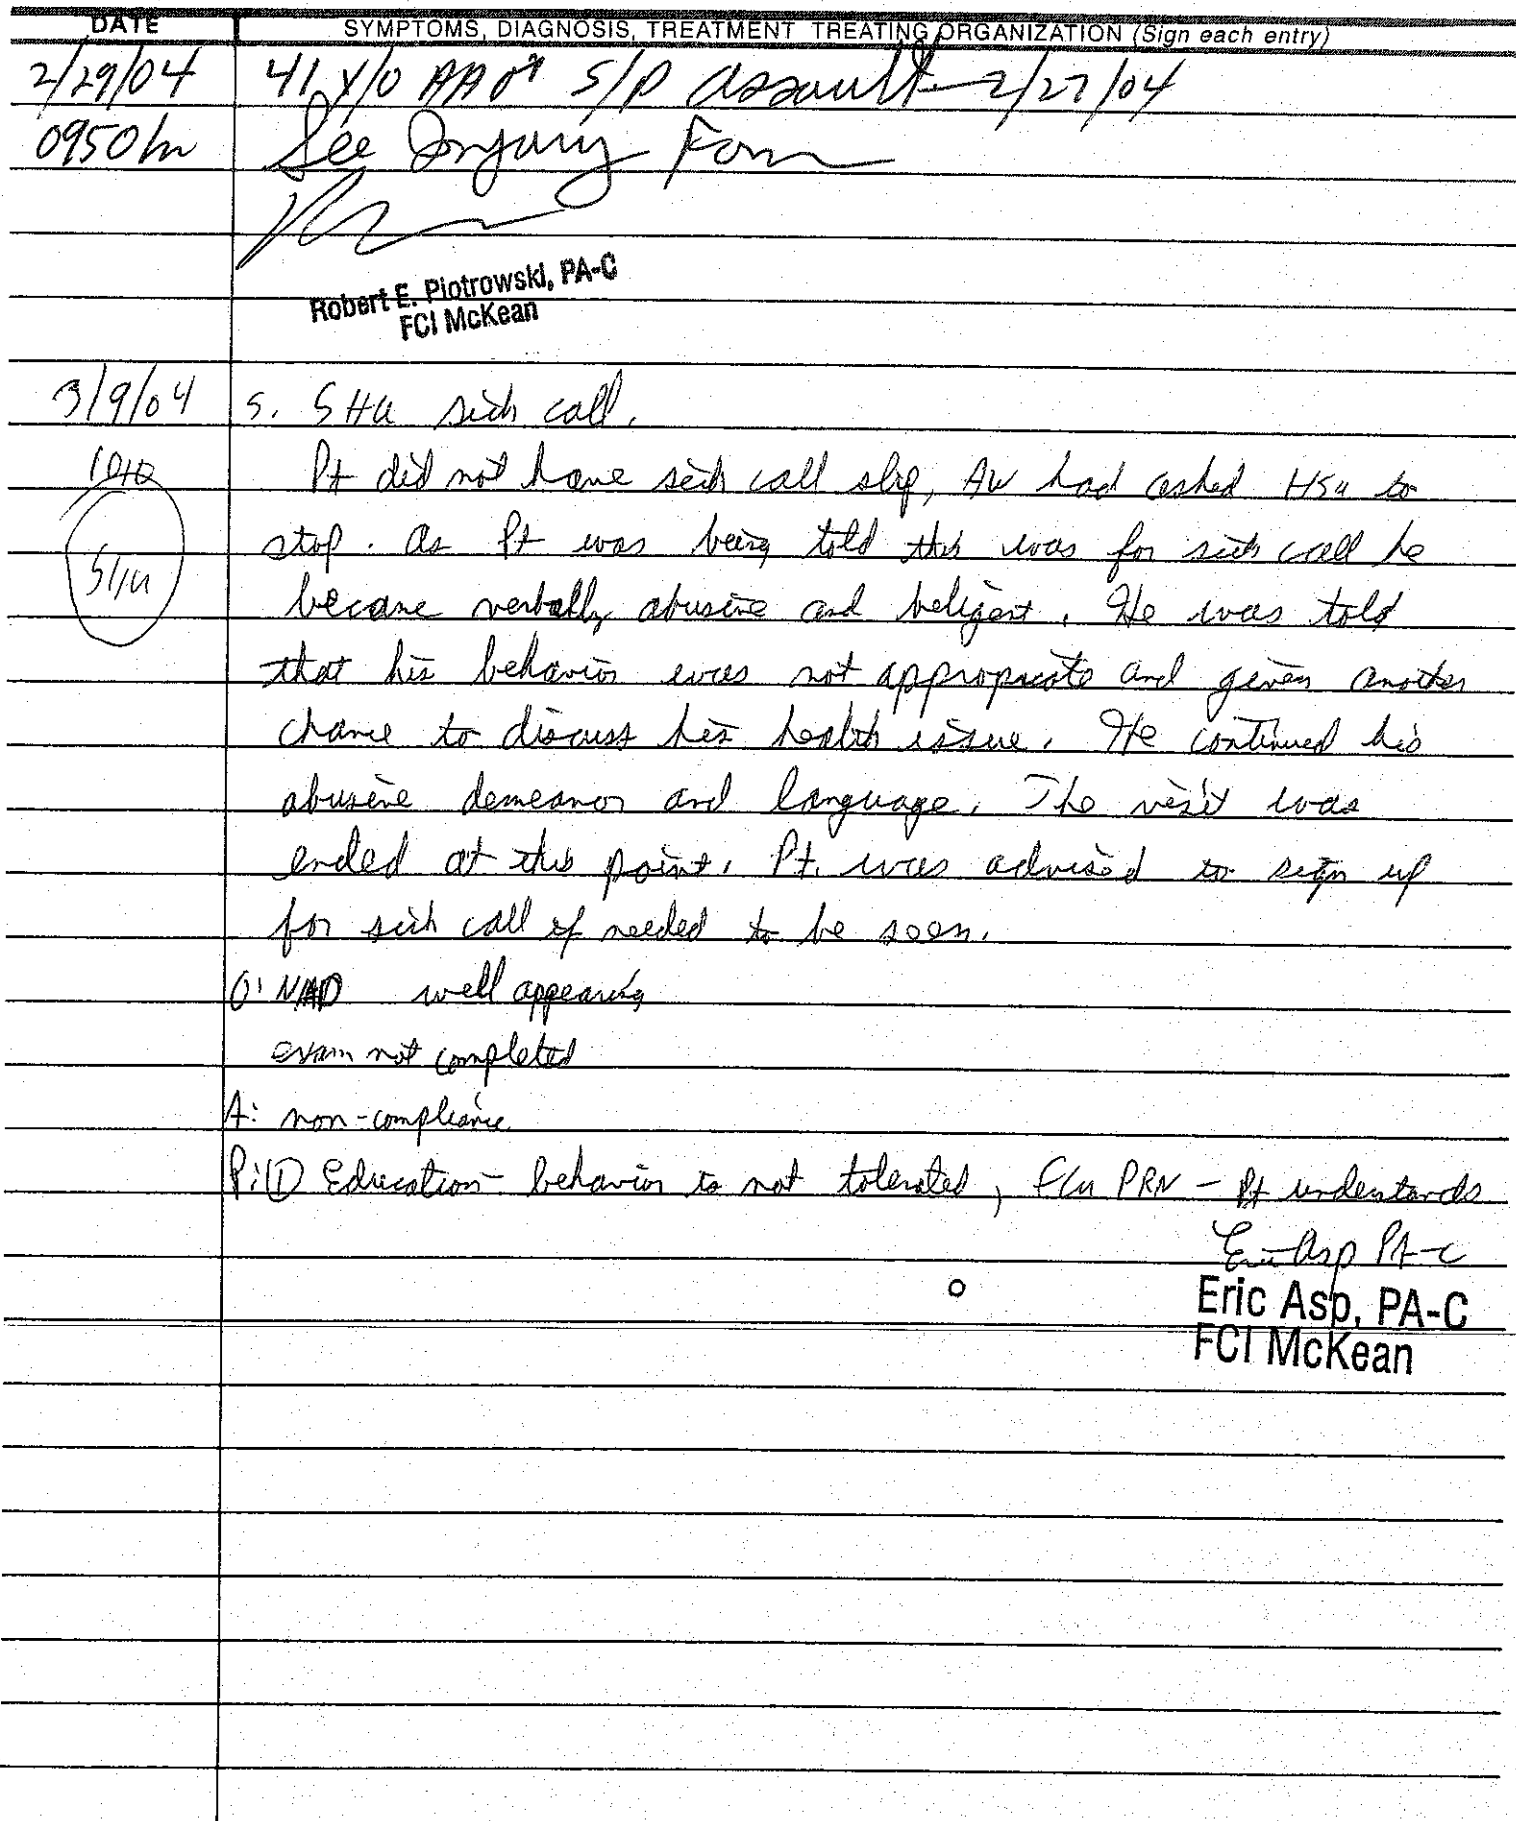 DATE SYMPTOMS, DIAGNOSIS, TREATMENT TREATING ORGANIZATION (Sign each entry)
2/29/04 41 y/o AA♂ S/P assault 2/27/04
0950hr See Injury Form
Robert E. Piotrowski, PA-C
FCI McKean
3/9/04 S. SHU sick call.
Pt did not have sick call slip, AW had asked HSU to
stop. As Pt was being told this was for sick call he
SHU
became verbally abusive and beligent. He was told
that his behavior was not appropriate and given another
chance to discuss his health issue. He continued his
abusive demeanor and language. The visit was
ended at this point. Pt. was advised to sign up
for sick call if needed to be seen.
O: NAD well appearing
exam not completed
A: non-compliance
P: ① Education - behavior is not tolerated, F/u PRN - Pt understands
Eric Asp PA-C
Eric Asp, PA-C
FCI McKean